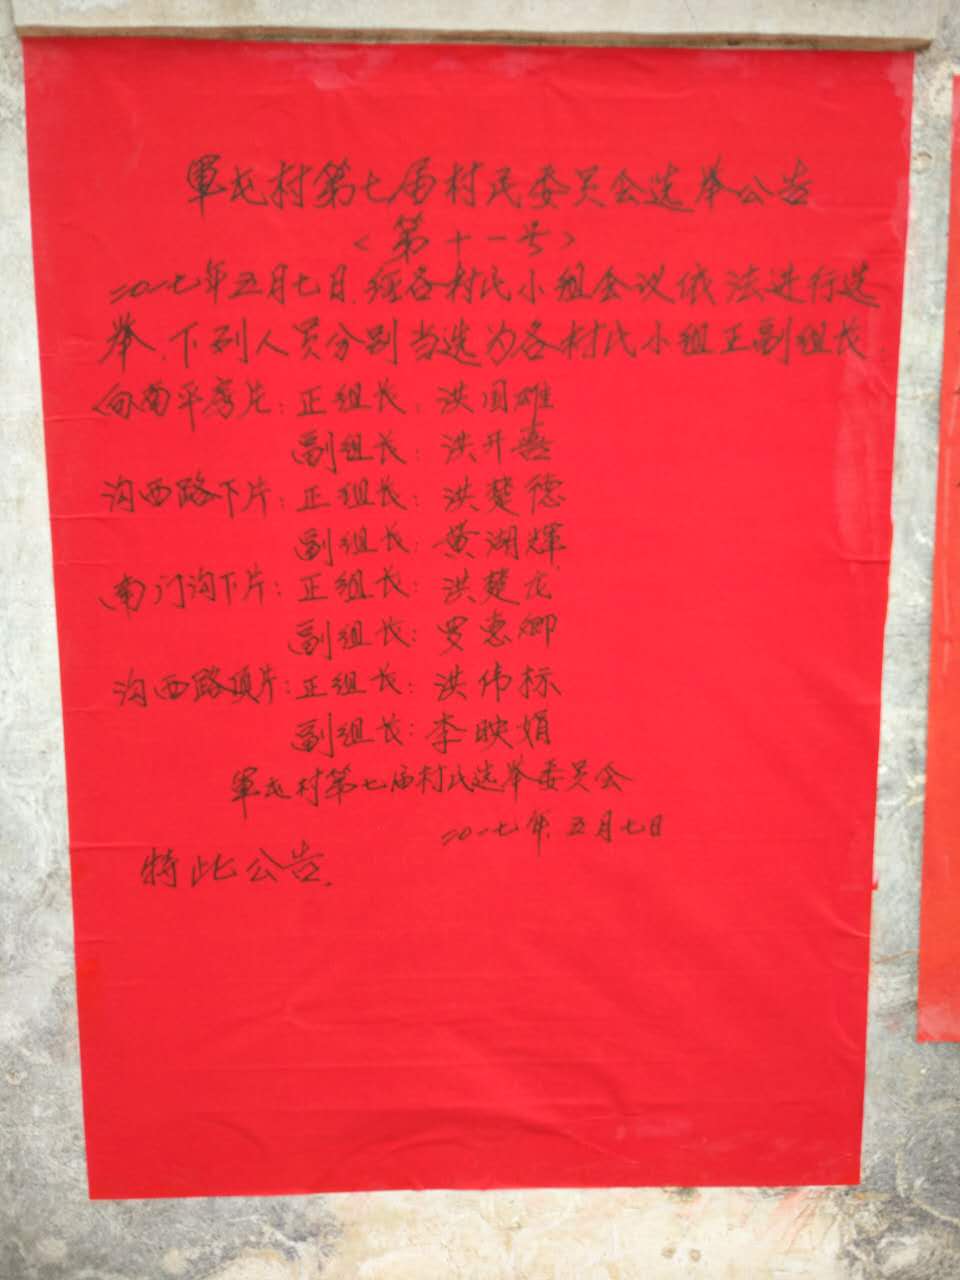 軍屯村第七届村民委员会选举公告
<第十一号>
二〇一七年五月七日.经各村民小组会议依法进行选
举.下列人员分别当选为各村民小组正副组长
向南平 片:正组长:洪国雄
副组长:洪开
沟西路下片:正组长:洪楚德
副组长:黄湖輝
南门沟下片:正组长:洪楚龙
副组长:罗惠卿
沟西路顶片:正组长:洪伟标
副组长:李映娟
軍屯村第七届村民选举委员会
二〇一七年.五月七日
特此公告.